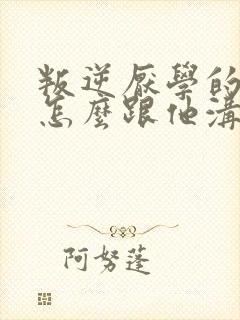 叛逆厭學的
怎麼跟他溝
阿努蓬